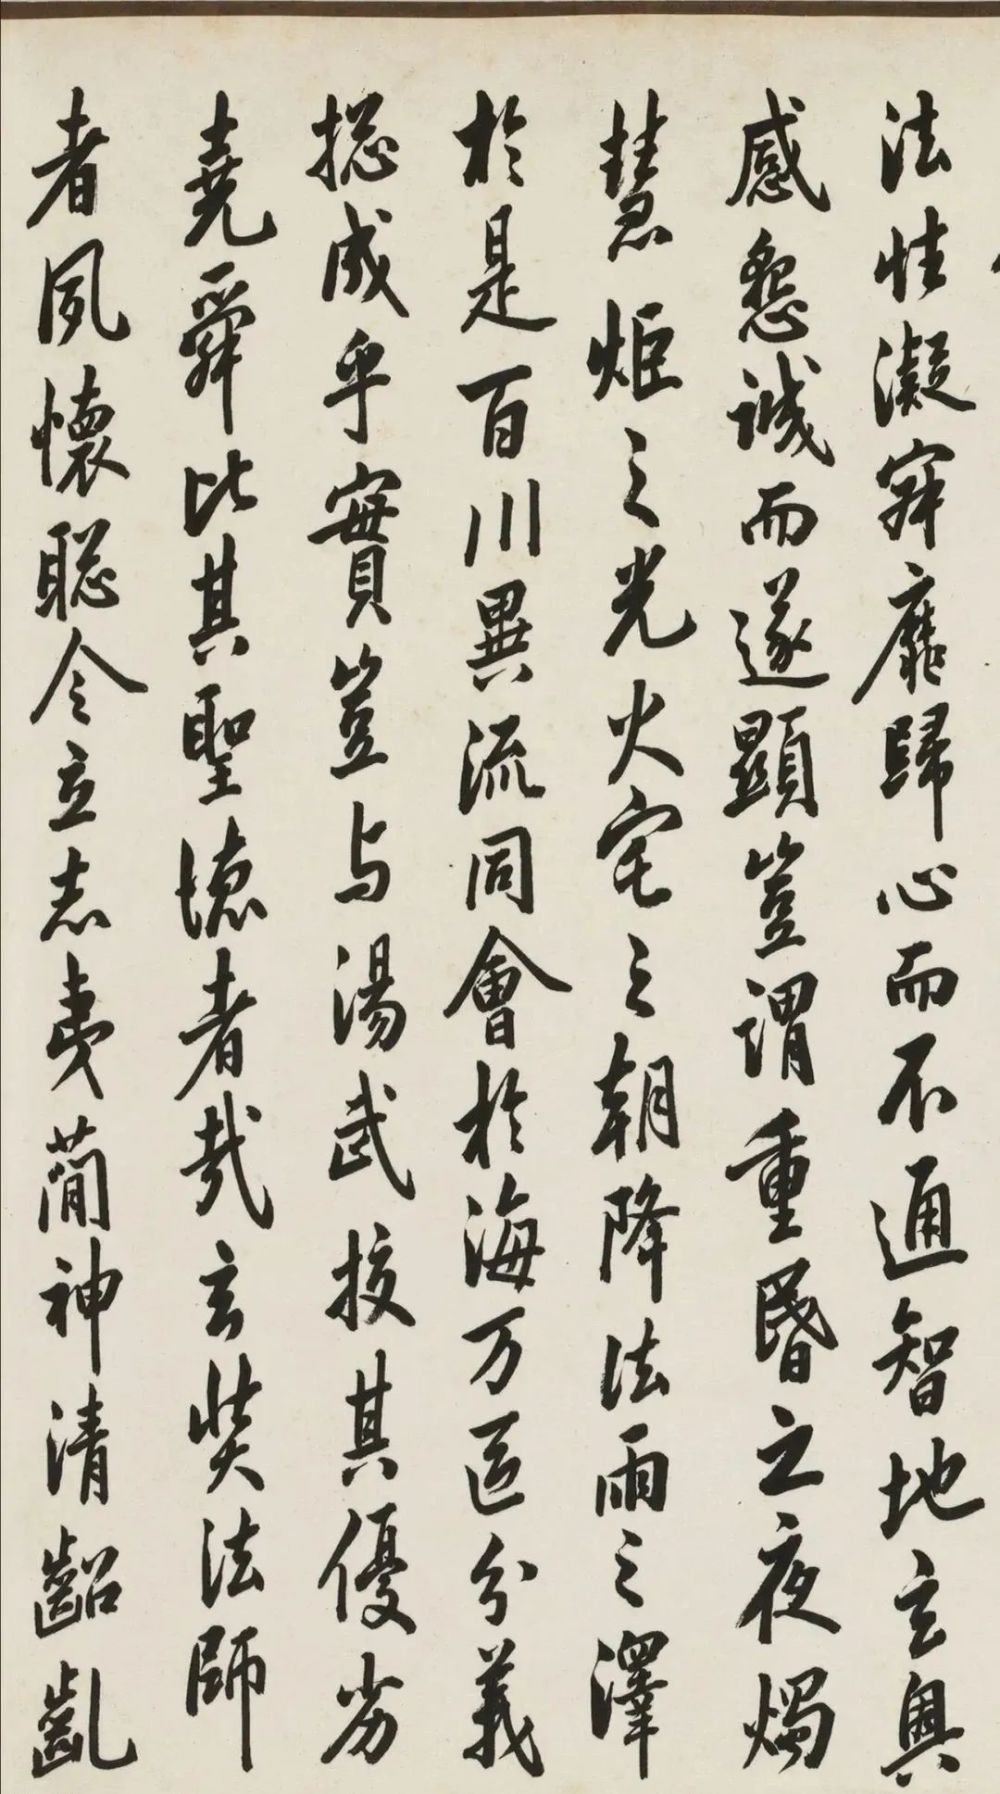 法性凝寂靡歸心而不通智地玄奧
感懇誠而遂顯豈謂重昏之夜燭
慧炬之光火宅之朝降法雨之澤
於是百川異流同會於海万區分義
揔成乎實豈与湯武挍其優劣
堯舜比其聖德者哉玄奘法師
者夙懷聡令立志夷蕑神清齠齓